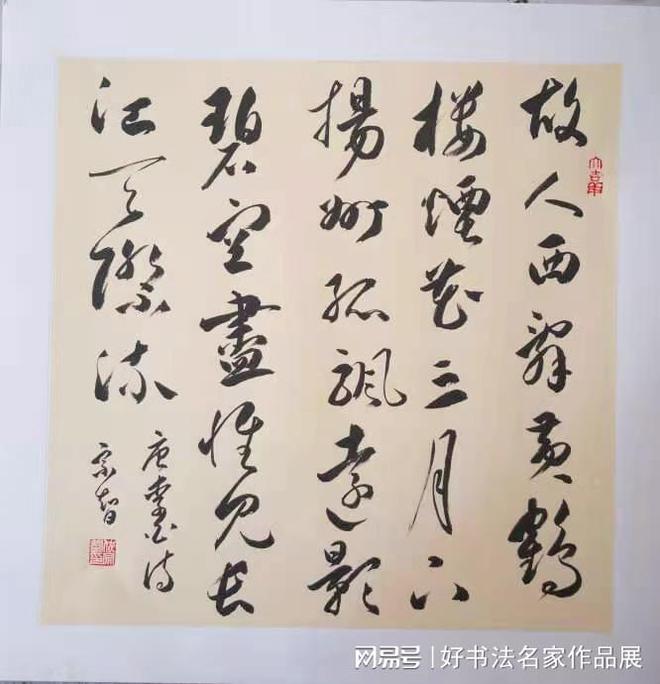 故人西辞黄鹤
楼煙花三月下
揚州孤颿遠影
碧空盡惟見長
江天際流
唐李白诗
宗智
搜狐号|好书法名家作品展